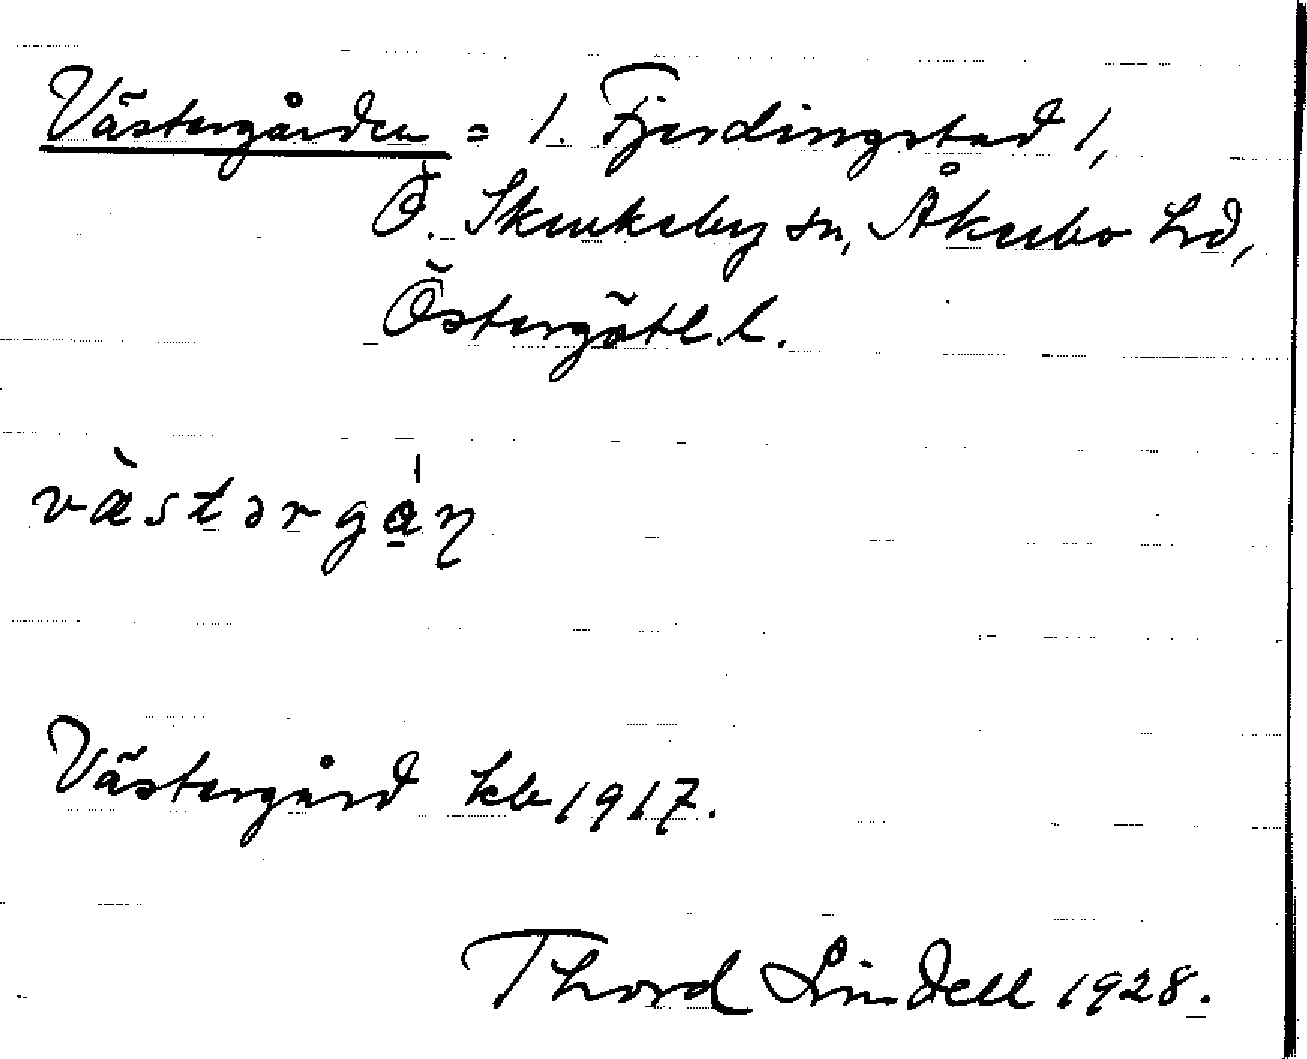 Västergården = 1. Fjerdingstad 1,
Ö. Skrukeby sn, Åkerbo hd,
Östergötl. l.
v̀ästərgá̱ṇ
Västergård kb 1917.
Thord Lindell 1928.